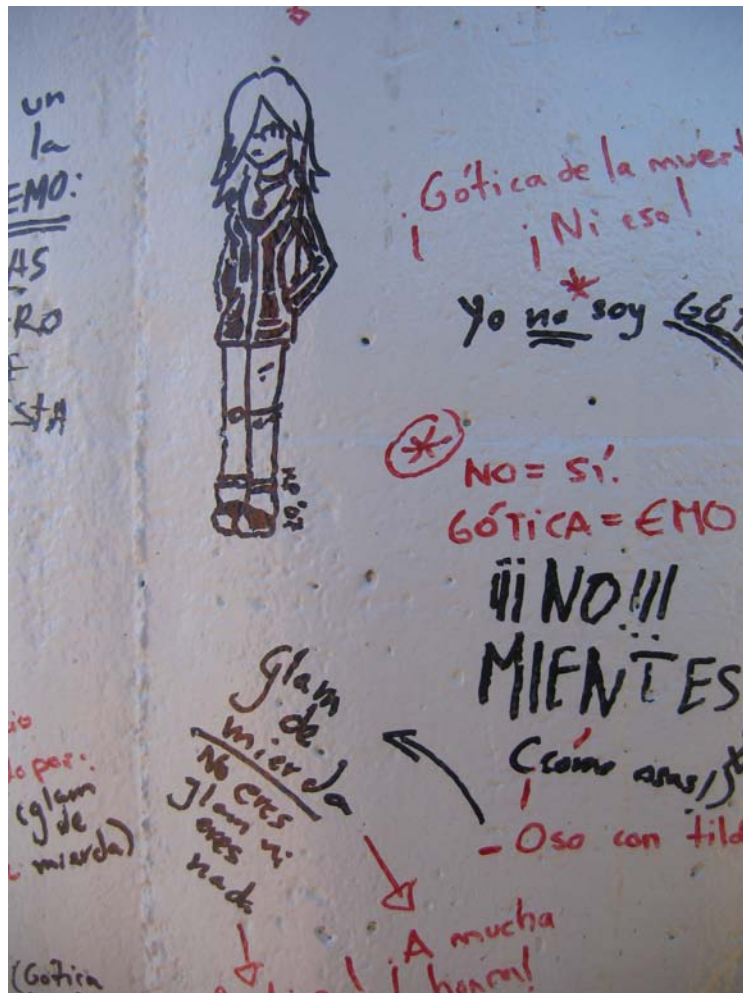 un
la
EMO:
Gótica de la muert
¡ ¡Ni eso!
*
Yo no soy GÓT
* NO = SÍ.
GÓTICA = EMO
¡¡¡NO!!!
MIENTES
(¡cómo osas!)
- Oso con tild
Glam
de
mierda
No eres
glam ni
eres
nada.
A mucha
honra!
do por:
(glam
de
mierda)
(Gótica